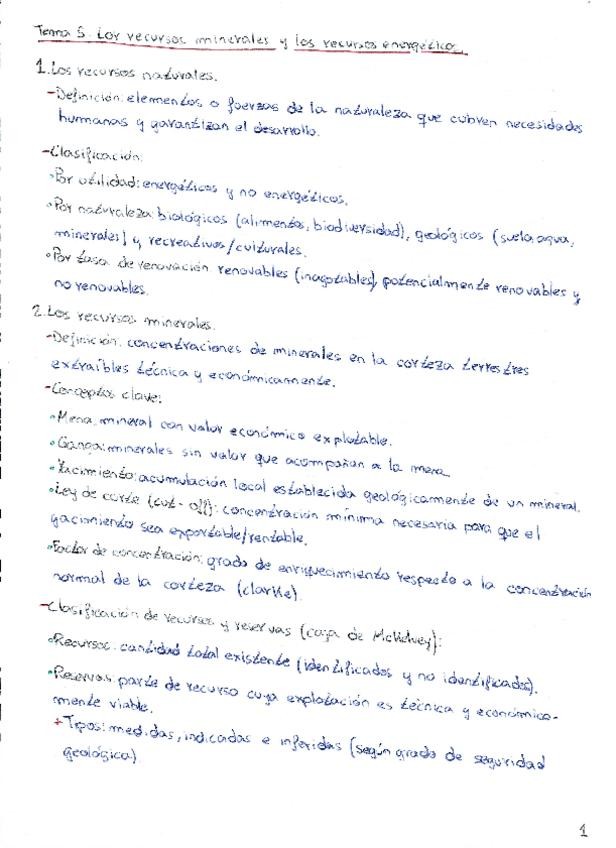 Tema 5. Los recursos minerales y los recursos energéticos
1. Los recursos naturales.
-Definición: elementos o fuerzas de la naturaleza que cubren necesidades
humanas y garantizan el desarrollo.
-Clasificación:
•Por utilidad: energéticos y no energéticos.
•Por naturaleza: biológicos (alimentos, biodiversidad), geológicos (suelo, agua,
minerales) y recreativos/culturales.
•Por tasa de renovación: renovables (inagotables), potencialmente renovables y
no renovables.
2. Los recursos minerales.
-Definición: concentraciones de minerales en la corteza terrestres
extraíbles técnica y económicamente.
-Conceptos clave:
•Mena: mineral con valor económico explotable.
•Ganga: minerales sin valor que acompañan a la mena
•Yacimiento: acumulación local establecida geológicamente de un mineral.
•Ley de corte (cut-off): concentración mínima necesaria para que el
yacimiento sea exportable/rentable.
•Factor de concentración: grado de enriquecimiento respecto a la concentración
normal de la corteza (clarke).
-Clasificación de recursos y reservas (caja de McKelvey):
•Recursos: cantidad total existente (identificados y no identificados).
•Reservas: parte de recurso cuya explotación es técnica y económica-
mente viable.
+Tipos: medidas, indicadas e inferidas (según grado de seguridad
geológica).
1